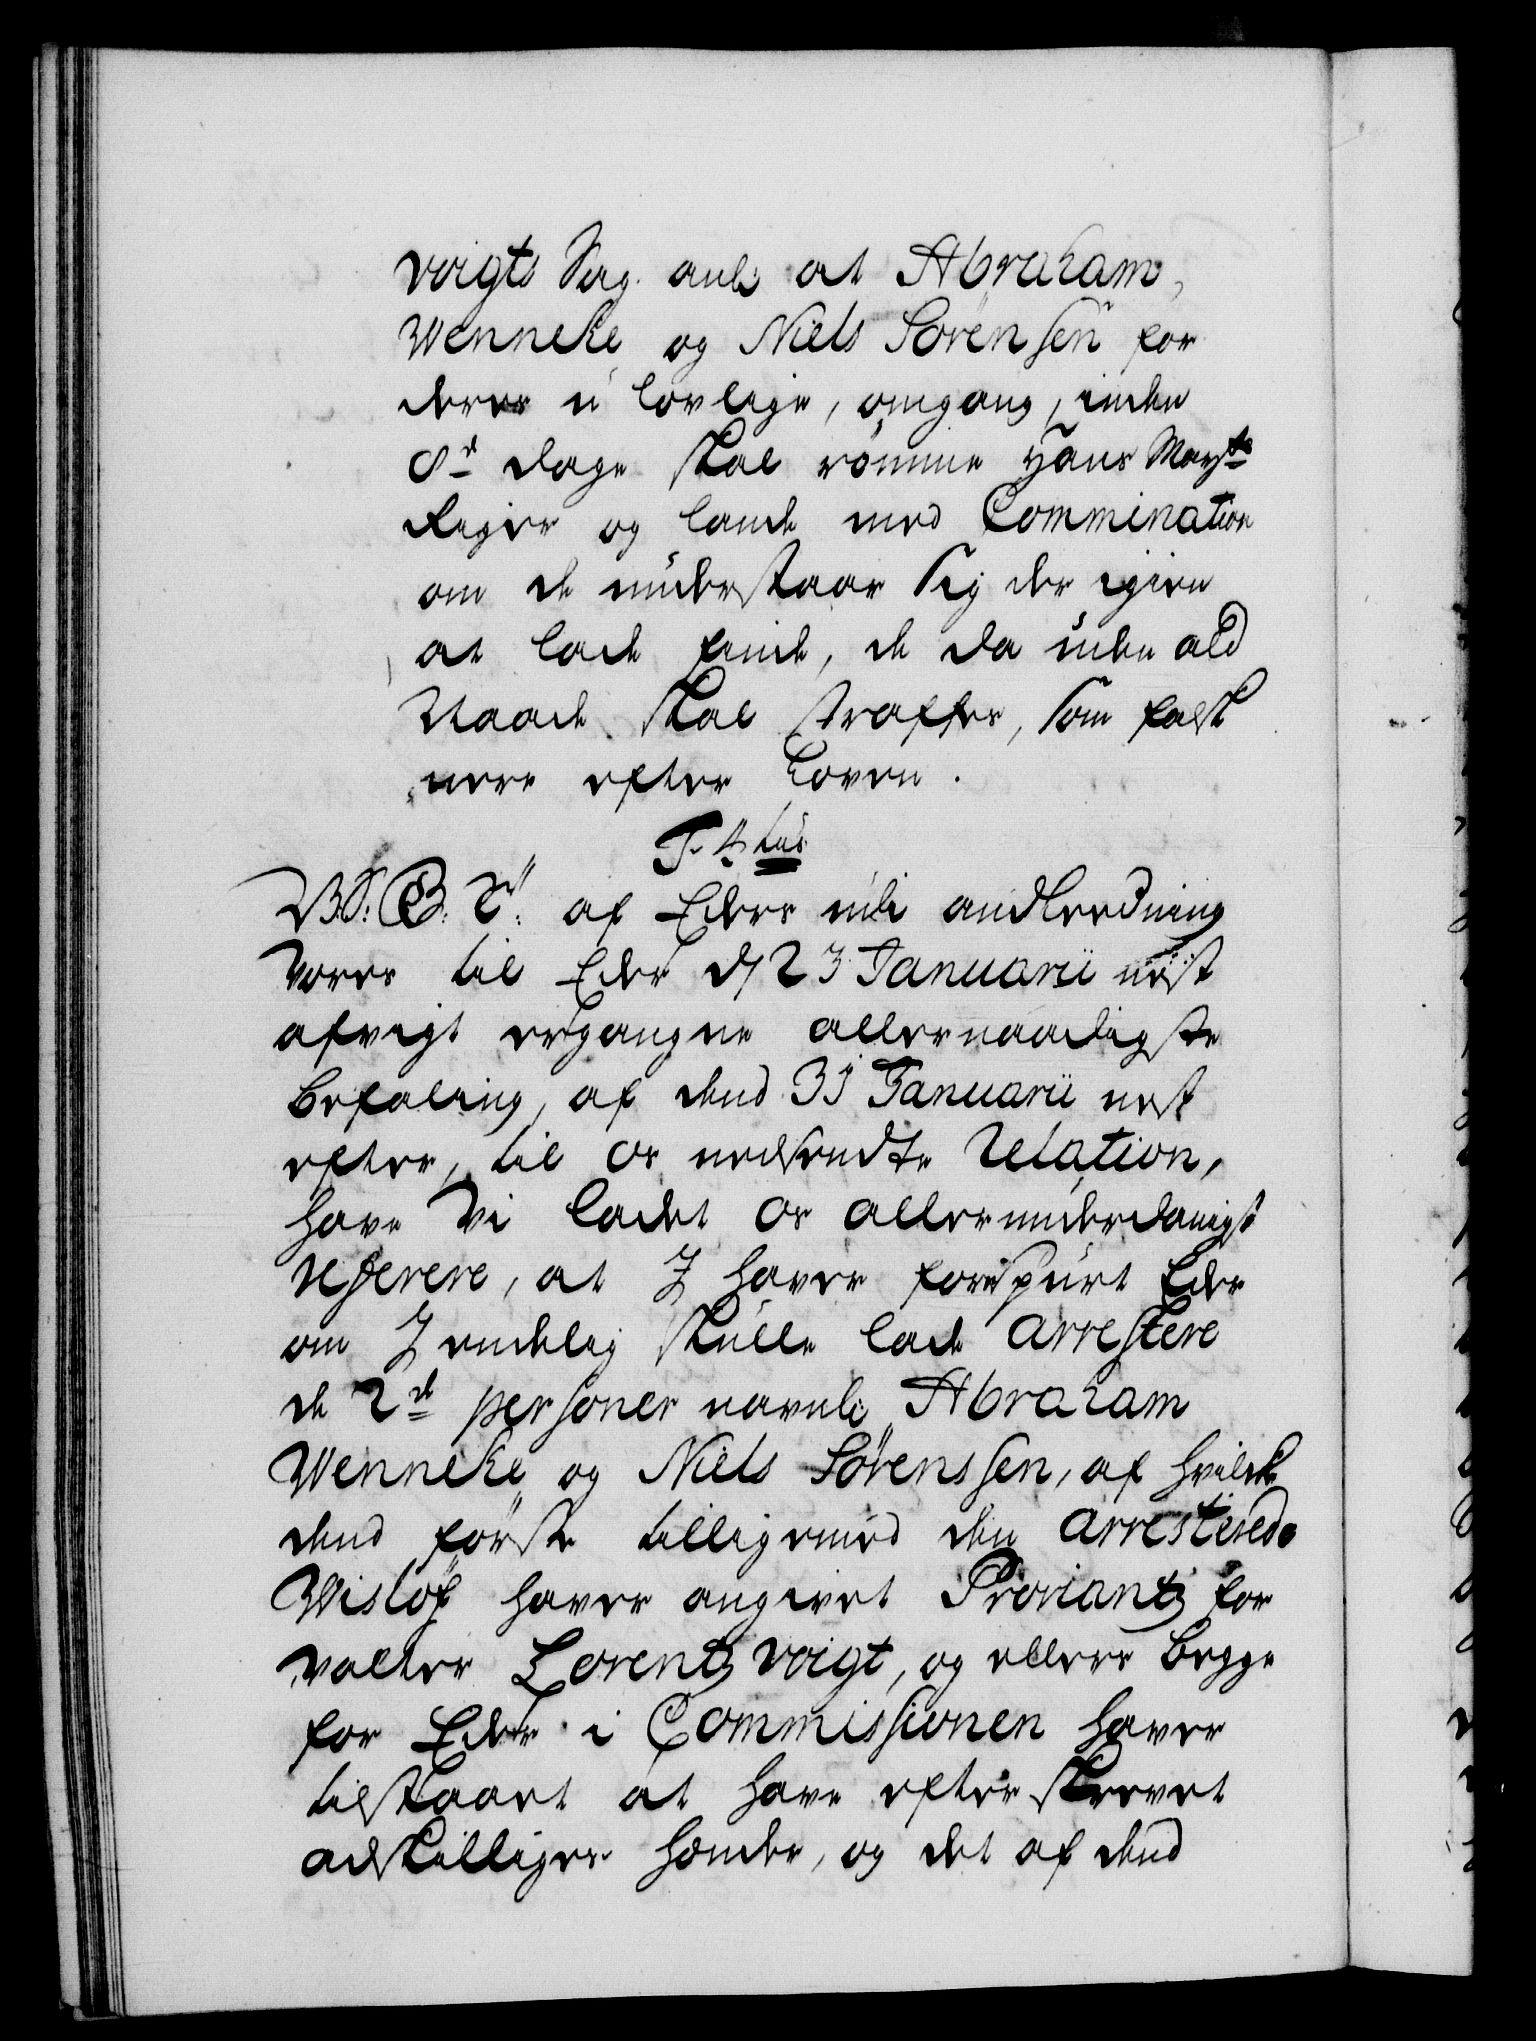 Voigts Sag anl: at Abraham
Wenneke og Niels Sörensen for
deres u lovlige, omgang, inden
8te dage skal römme Hans Mayts
Riger og lande med Commination
om de understaar sig der igien
at lade finde, de da uden ald
Naade skal straffes, som falsk
nere efter Loven.
Titus
V.S.G.T. af Eders udi andleedning
Vores til Eder d/ 23 Januarii nest
afvigt ergangne allernaadigste
befaling, af dend 31 Januarii nest
efter, til os nedsendte Relation,
have Vi ladet os allerunderdanigst
referere, at I haver forespurt Eder
om I endelig skulle lade arrestere
de 2de personer navnl: Abraham
Wenneke og Niels Sörenssen, af hvilcke
dend förste tilligemed den arresterede
Wislöf haver angivet Proviantz for
valter Lorentz Voigt, og ellers begge
for Eder i Commissionen haver
tilstaaet at have efterskrevet
adskilliges hender, og det af dend